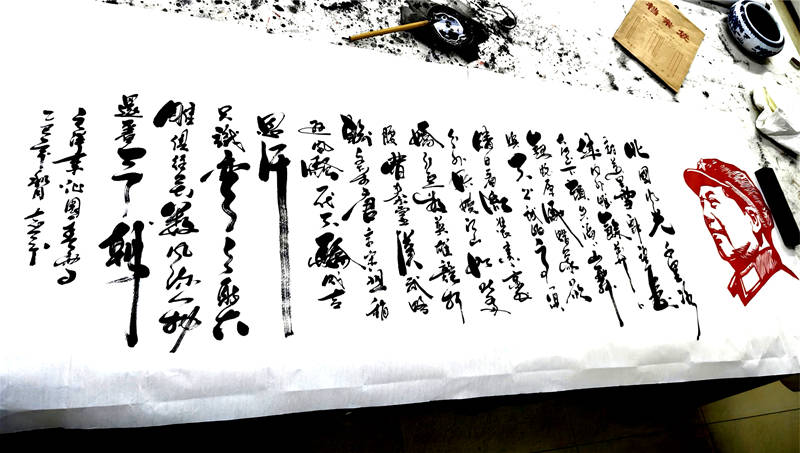 档案袋
北国风光千里冰
封万里雪飘望长城
内外惟余莽莽
大河上下顿失滔滔山舞
银蛇原驰蜡象欲
与天公试比高须
晴日看红装素裹
分外妖娆江山如此多
娇引无数英雄竞折
腰惜秦皇漢武略
输文采唐宗宋祖稍
逊风骚一代天骄成吉
思汗
只識弯弓射大
雕俱往矣数风流人物
還看今朝
毛泽东沁園春雪